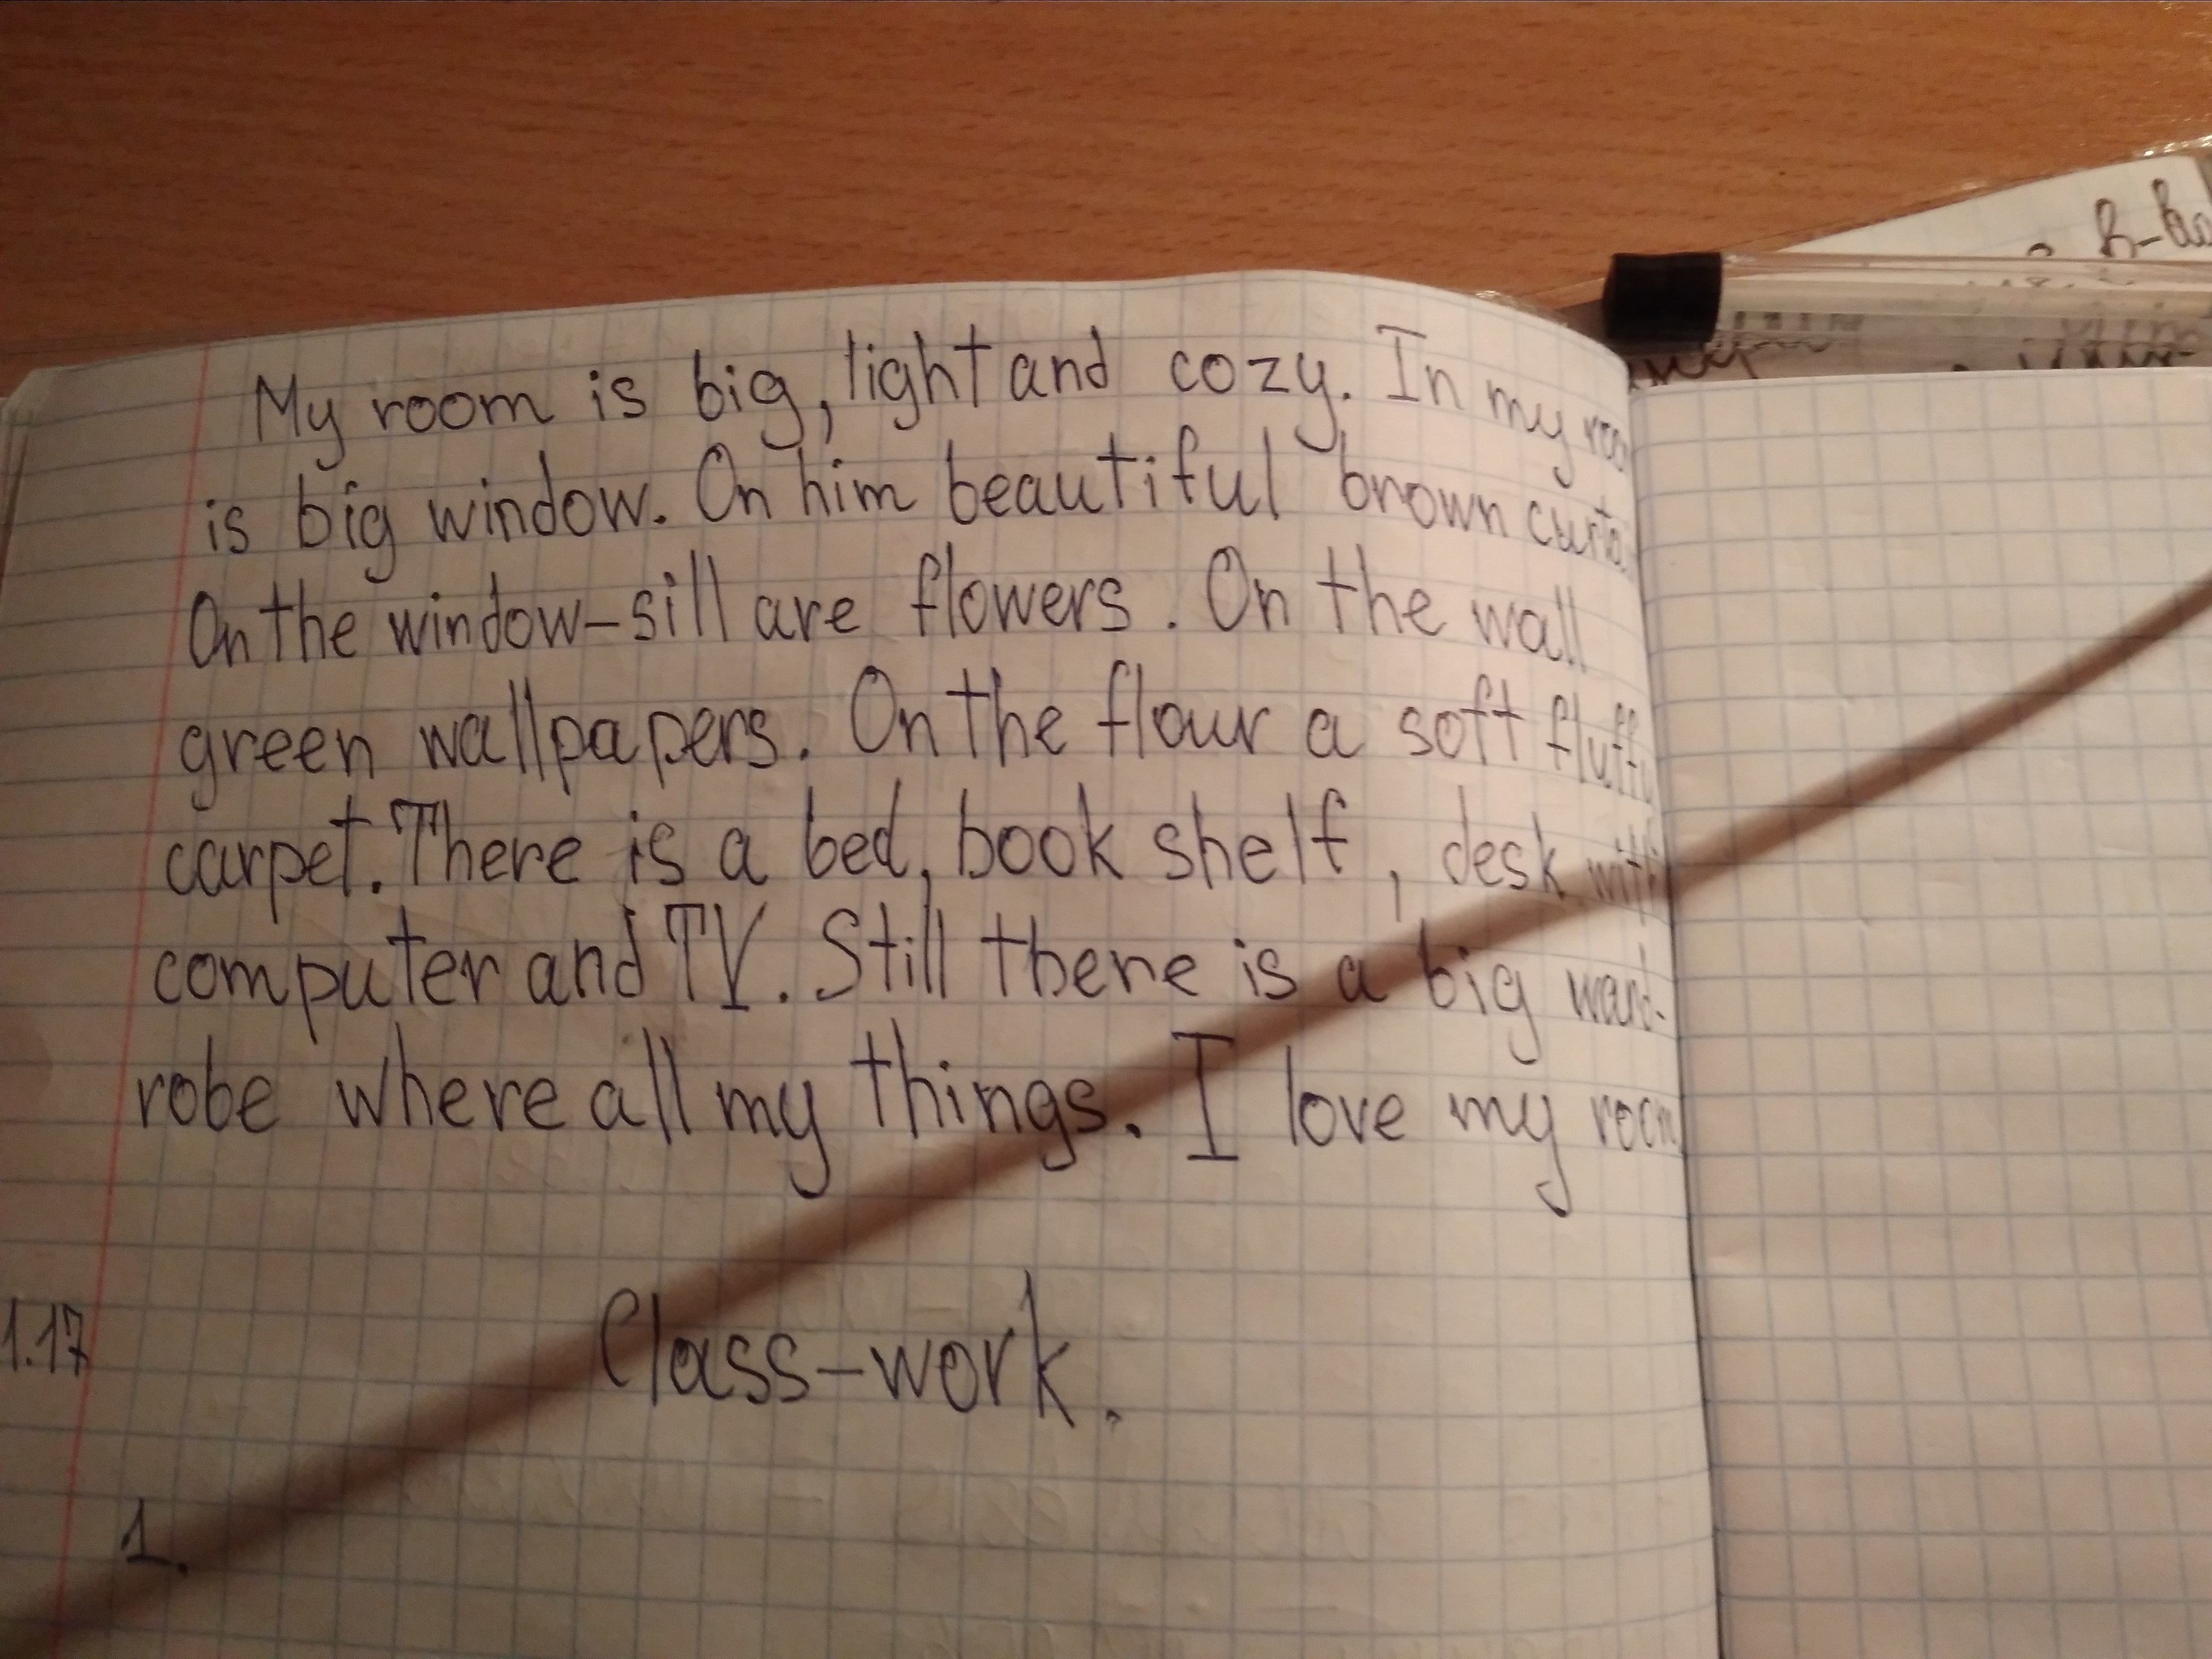 My room is big, light and cozy. In my room
is big window. On him beautiful brown
On the window-sill are flowers. On the wall
green wallpapers. On the flour a soft fluffy
carpet. There is a bed, book shelf, desk with
computer and TV. Still there is a big ward-
robe where all my things. I love my room
1.17 Class-work.
1.